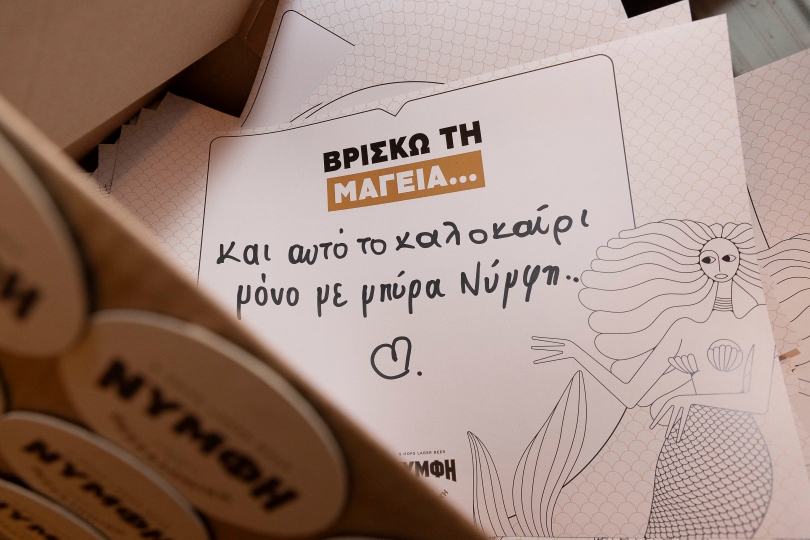 ΒΡΙΣΚΩ ΤΗ
ΜΑΓΕΙΑ...
και αυτό το καλοκαίρι
μόνο με μπύρα Νύμφη..
HOPS LAGER BEER
ΝΥΜΦΗ
ΝΥΜΦΗ
ΝΥΜΦΗ